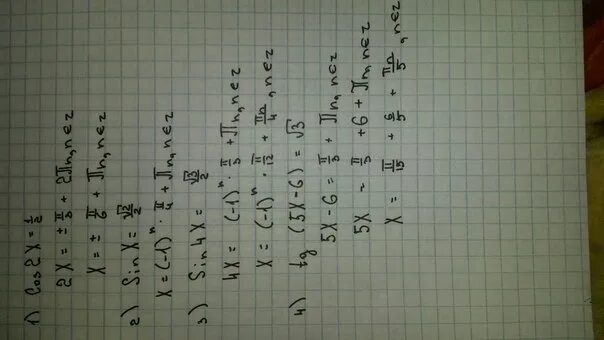 1) Cos 2X = 1/2
2X = ± π/3 + 2πn, n∈z
X = ± π/6 + πn, n∈z
2) Sin X = √2/2
X = (-1)ⁿ · π/4 + πn, n∈z
3) Sin 4X = √3/2
4X = (-1)ⁿ · π/3 + πn, n∈z
X = (-1)ⁿ · π/12 + πn/4, n∈z
4) tg (5X - 6) = √3
5X - 6 = π/3 + πn, n∈z
5X = π/3 + 6 + πn, n∈z
X = π/15 + 6/5 + πn/5, n∈z